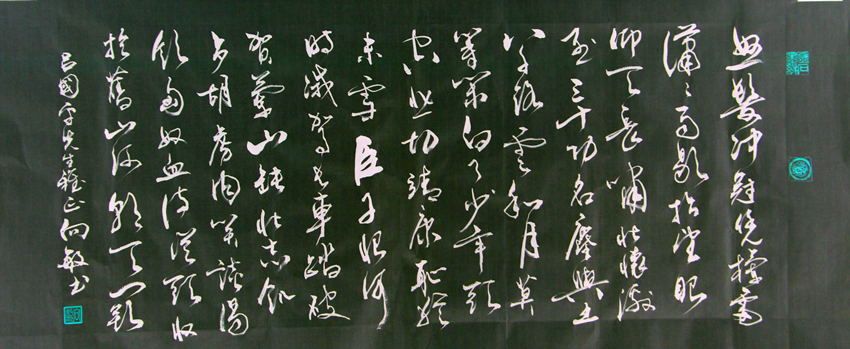 怒髮冲冠凭欄處
瀟瀟雨歇抬望眼
仰天長嘯壯懷激
烈三十功名塵與土
八千路雲和月莫
等閑白了少年頭
空悲切靖康恥猶
未雪臣子恨何
時滅駕長車踏破
賀蘭山缺壯志飢
餐胡虜肉笑談渴
飲匈奴血待從頭收
拾舊山河朝天闕
吕國平先生雅正向敏书